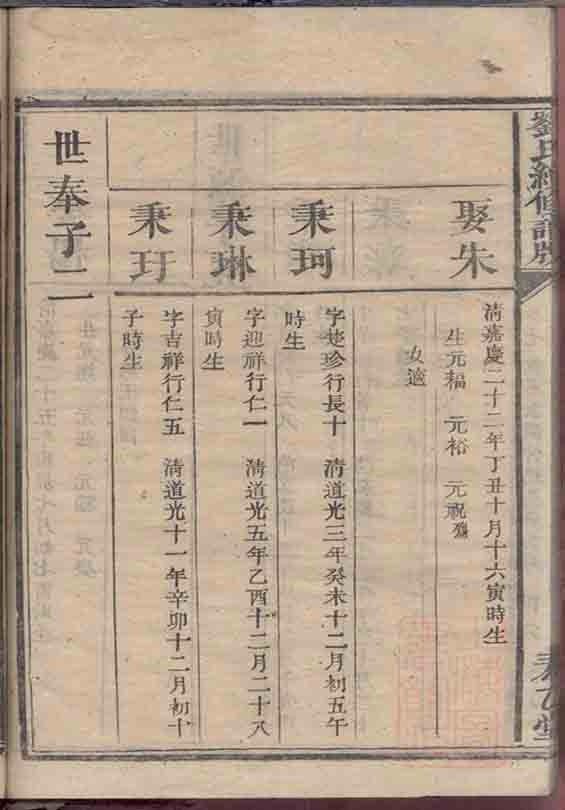 娶朱
清嘉慶二十二年丁丑十月十六寅時生
生元福 元裕 元祝
女適
秉珂
字楚珍行長十 清道光三年癸未十二月初五午
時生
秉琳
字迎祥行仁一 清道光五年乙酉十二月二十八
寅時生
秉玗
字吉祥行仁五 清道光十一年辛卯十二月初十
子時生
世奉子二